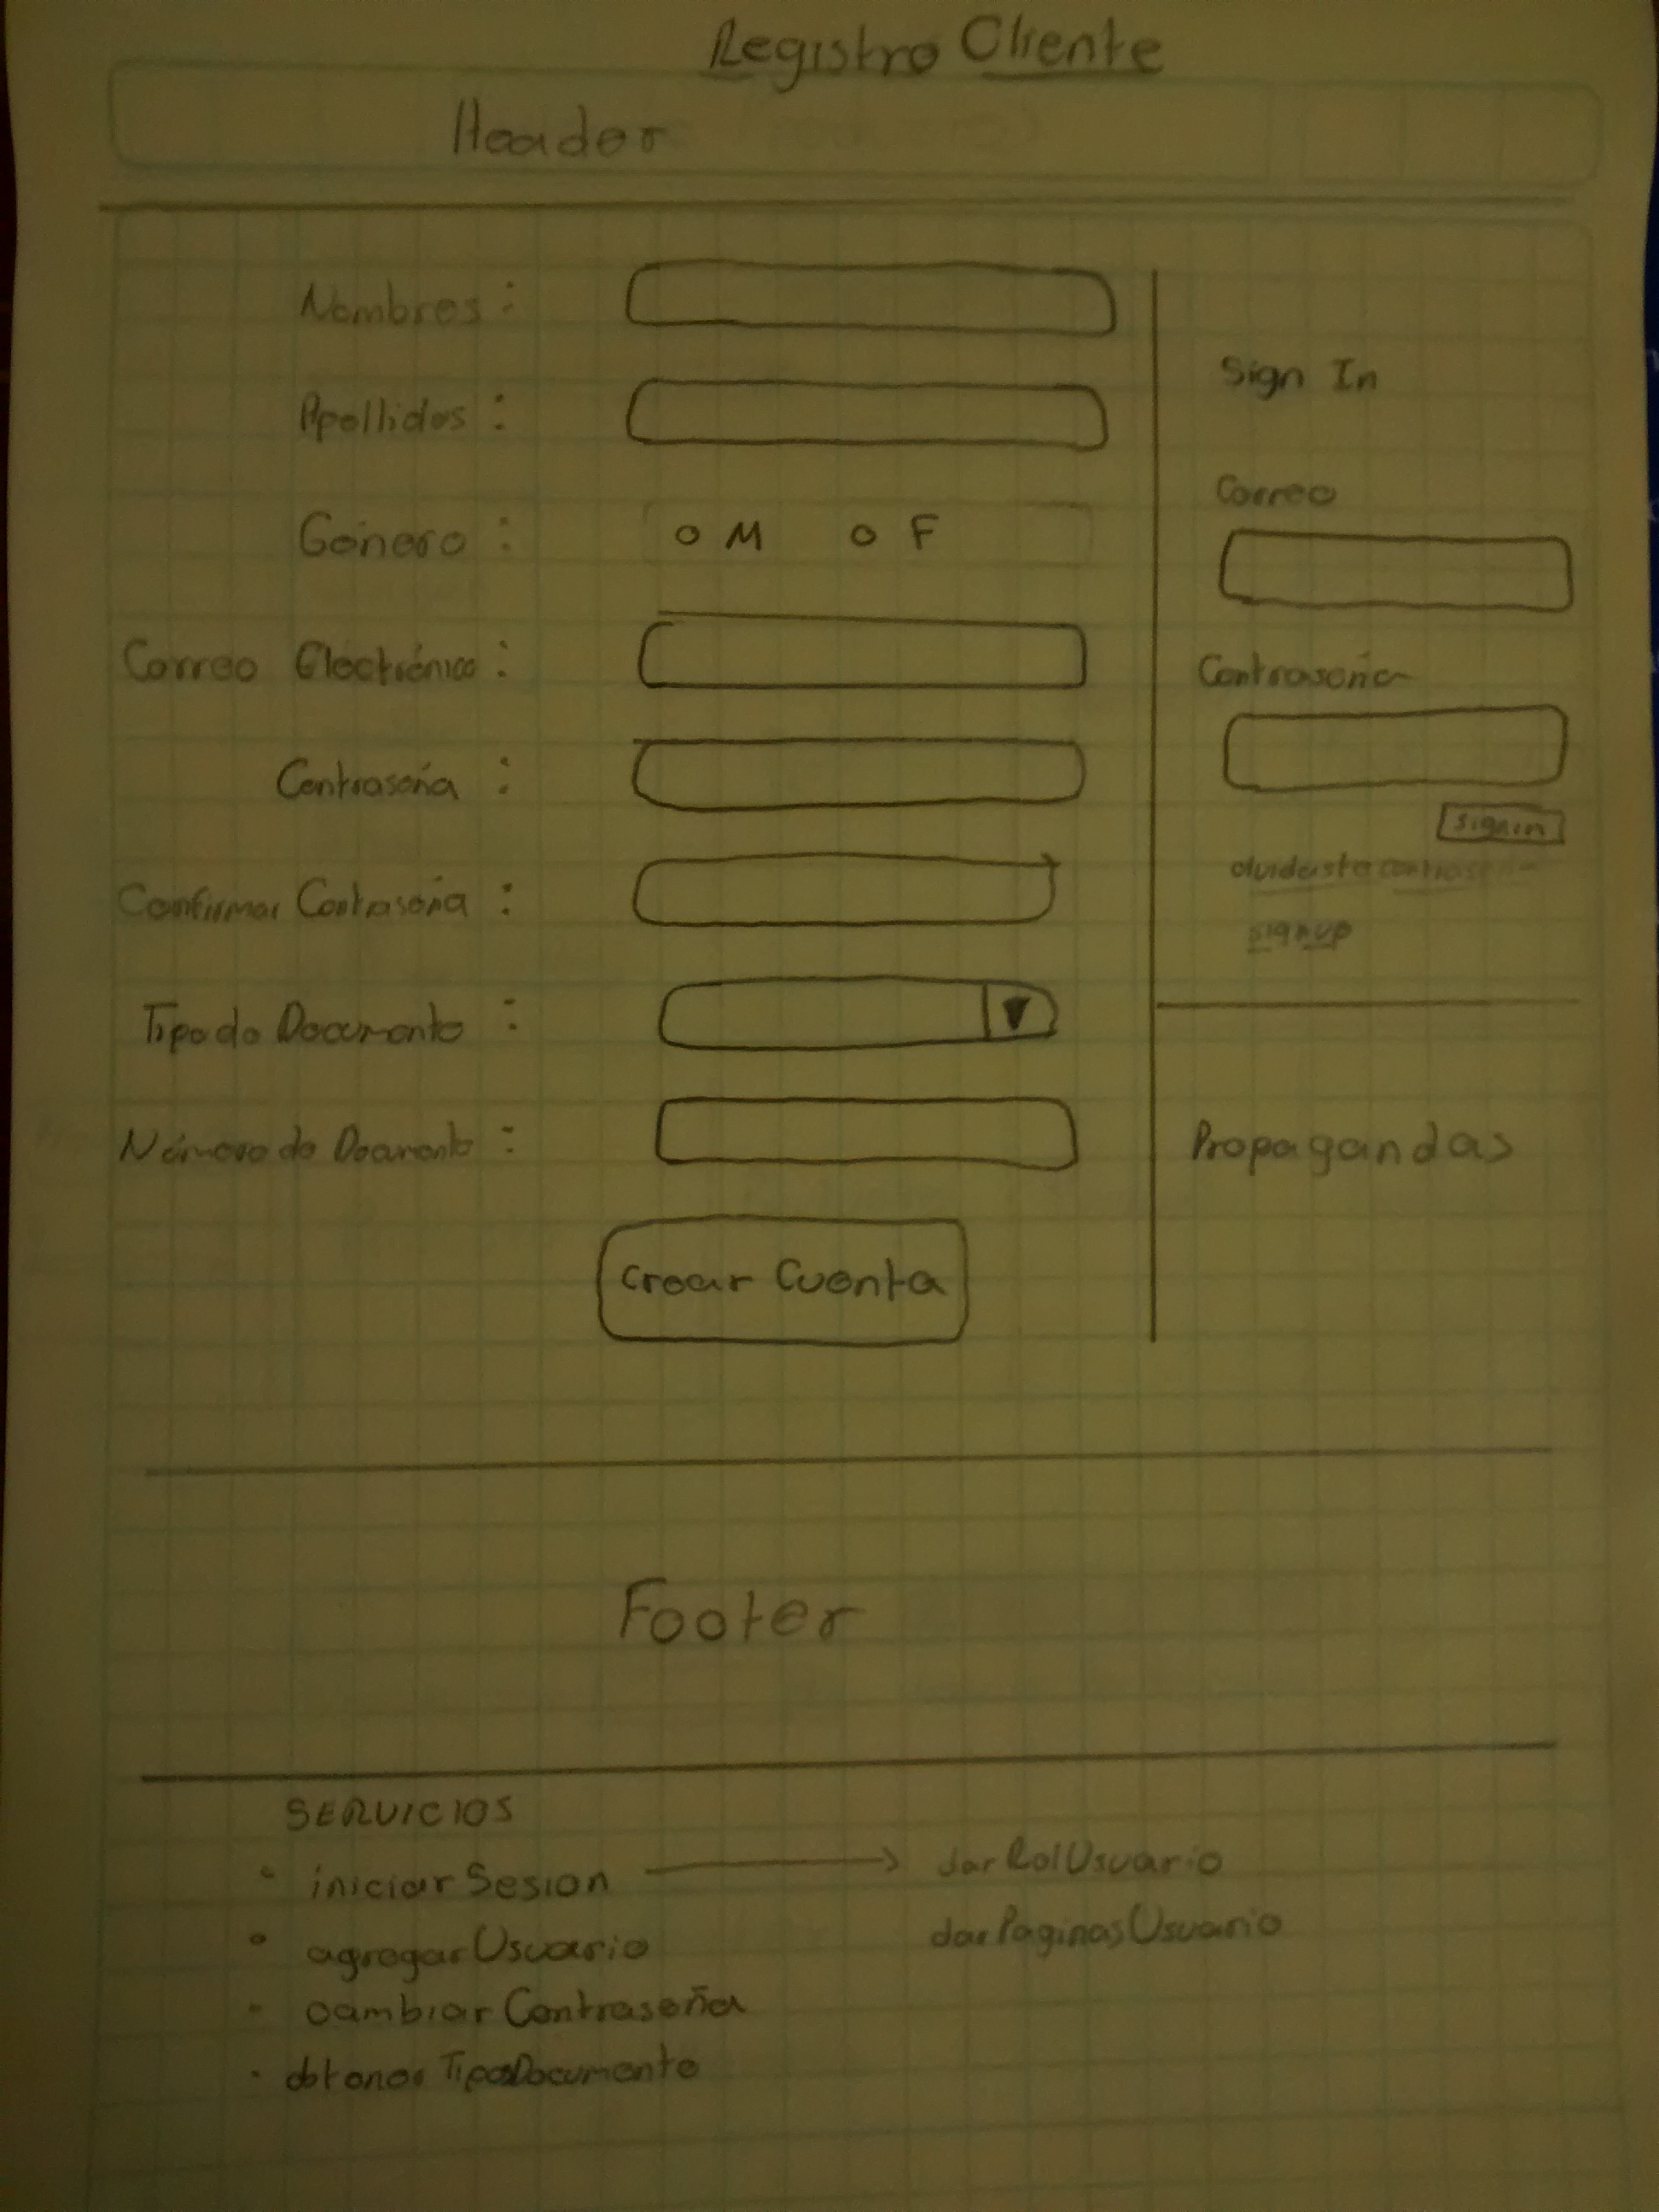 Registro Cliente
Header
Nombres :
Apellidos :
Género :
o M o F
Correo Electrónico :
Contraseña :
Confirmar Contraseña :
Tipo de Documento :
Número de Documento :
Crear Cuenta
Sign In
Correo
Contraseña
signin
olvidaste contraseña
signup
Propagandas
Footer
SERVICIOS
iniciarSesion → darRolUsuario
agregarUsuario
darPaginasUsuario
cambiarContraseña
obtenerTiposDocumento